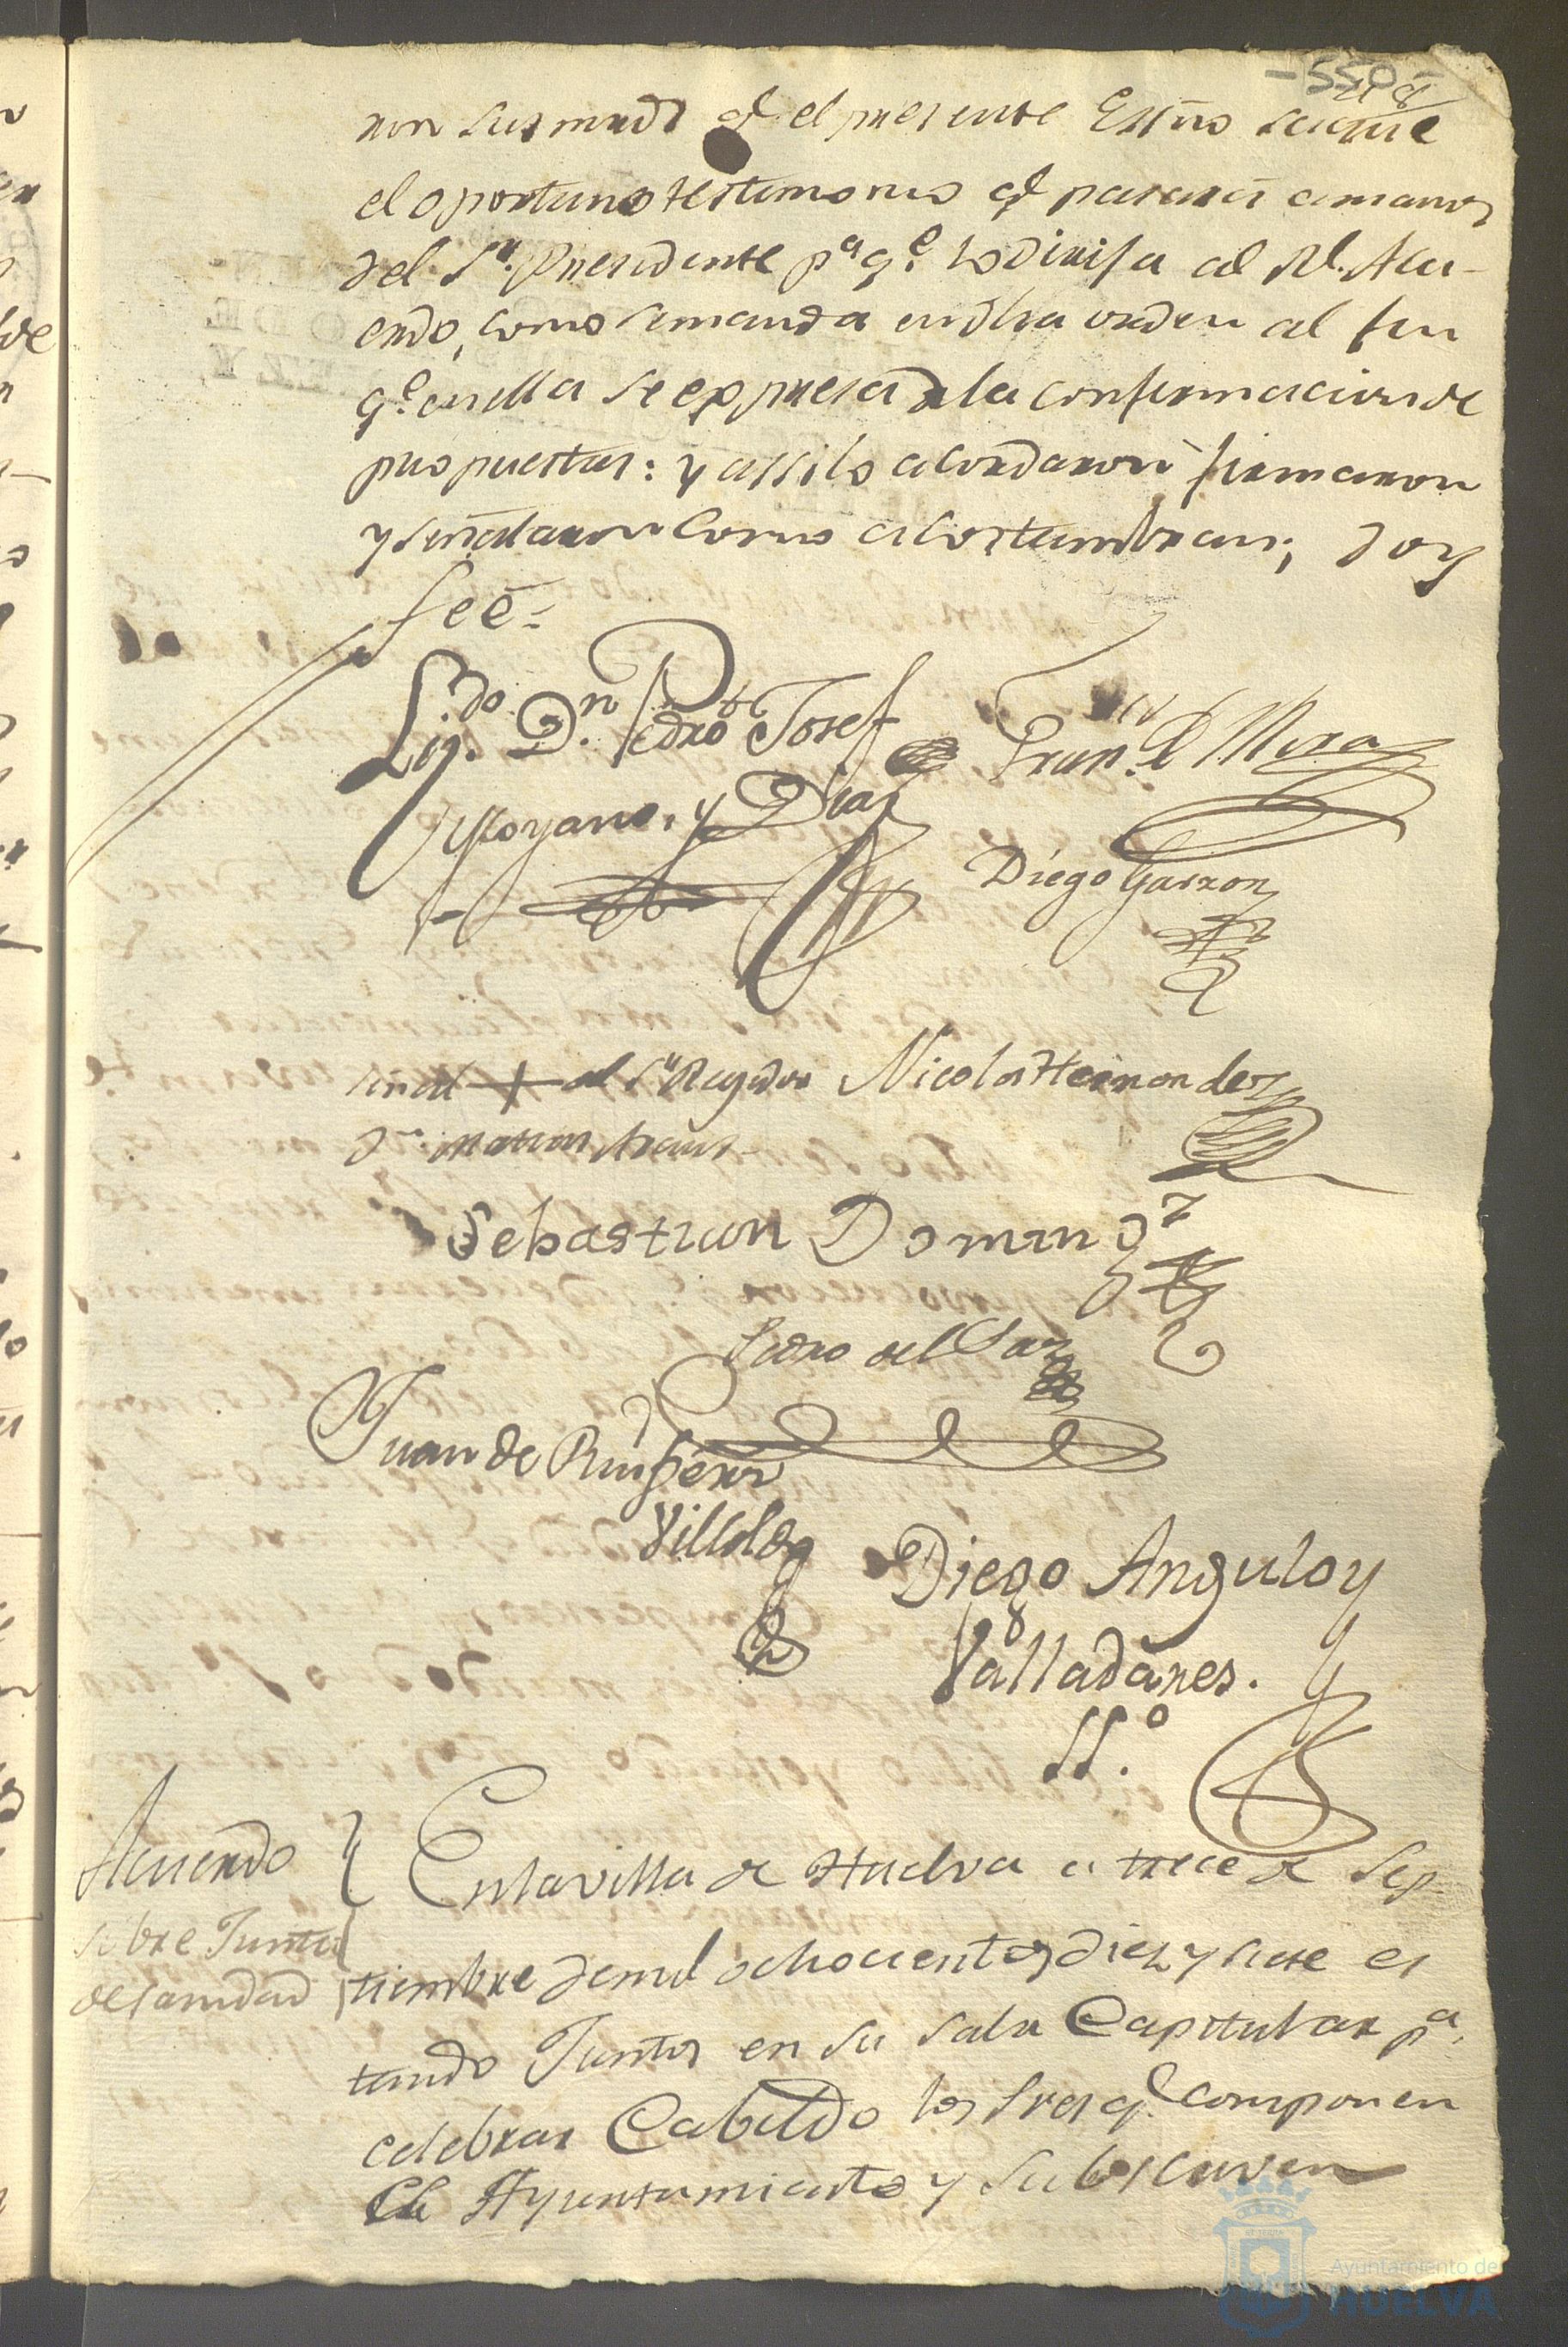 -550-
ron sus mrds qe el presente Essno saque
el oportuno testimonio qe pasará a manos
del Sr. Presidente pa qe. lo dirija al Rl. Acu-
erdo, como se manda en dha orden al fin
qe. en ella se expresa de la confirmacion de
propuestas: y assi lo acordaron firmaron
y señalaron como acostumbran; doy
feé=
Lizdo. Dn. Pedro Josef
Moyano, y Diaz
Franco. de Mora
Diego Garzon
señal + del Sr Regidor
Nicolas Hernandez
Dn. Matias
Sebastian Doming z
Pedro del Paz
Juan de
Diego Angulo y
Valladares.
SSo.
Acuerdo
sobre Junta
de sanidad
En la villa de Huelva a trece de Sep-
tiembre de mil ochocientos diez y siete es
tando Juntos en su sala Capitular pa.
celebrar Cabildo los Sres q. componen
el Ayuntamiento y subscriven
Ayuntamiento de
HUELVA